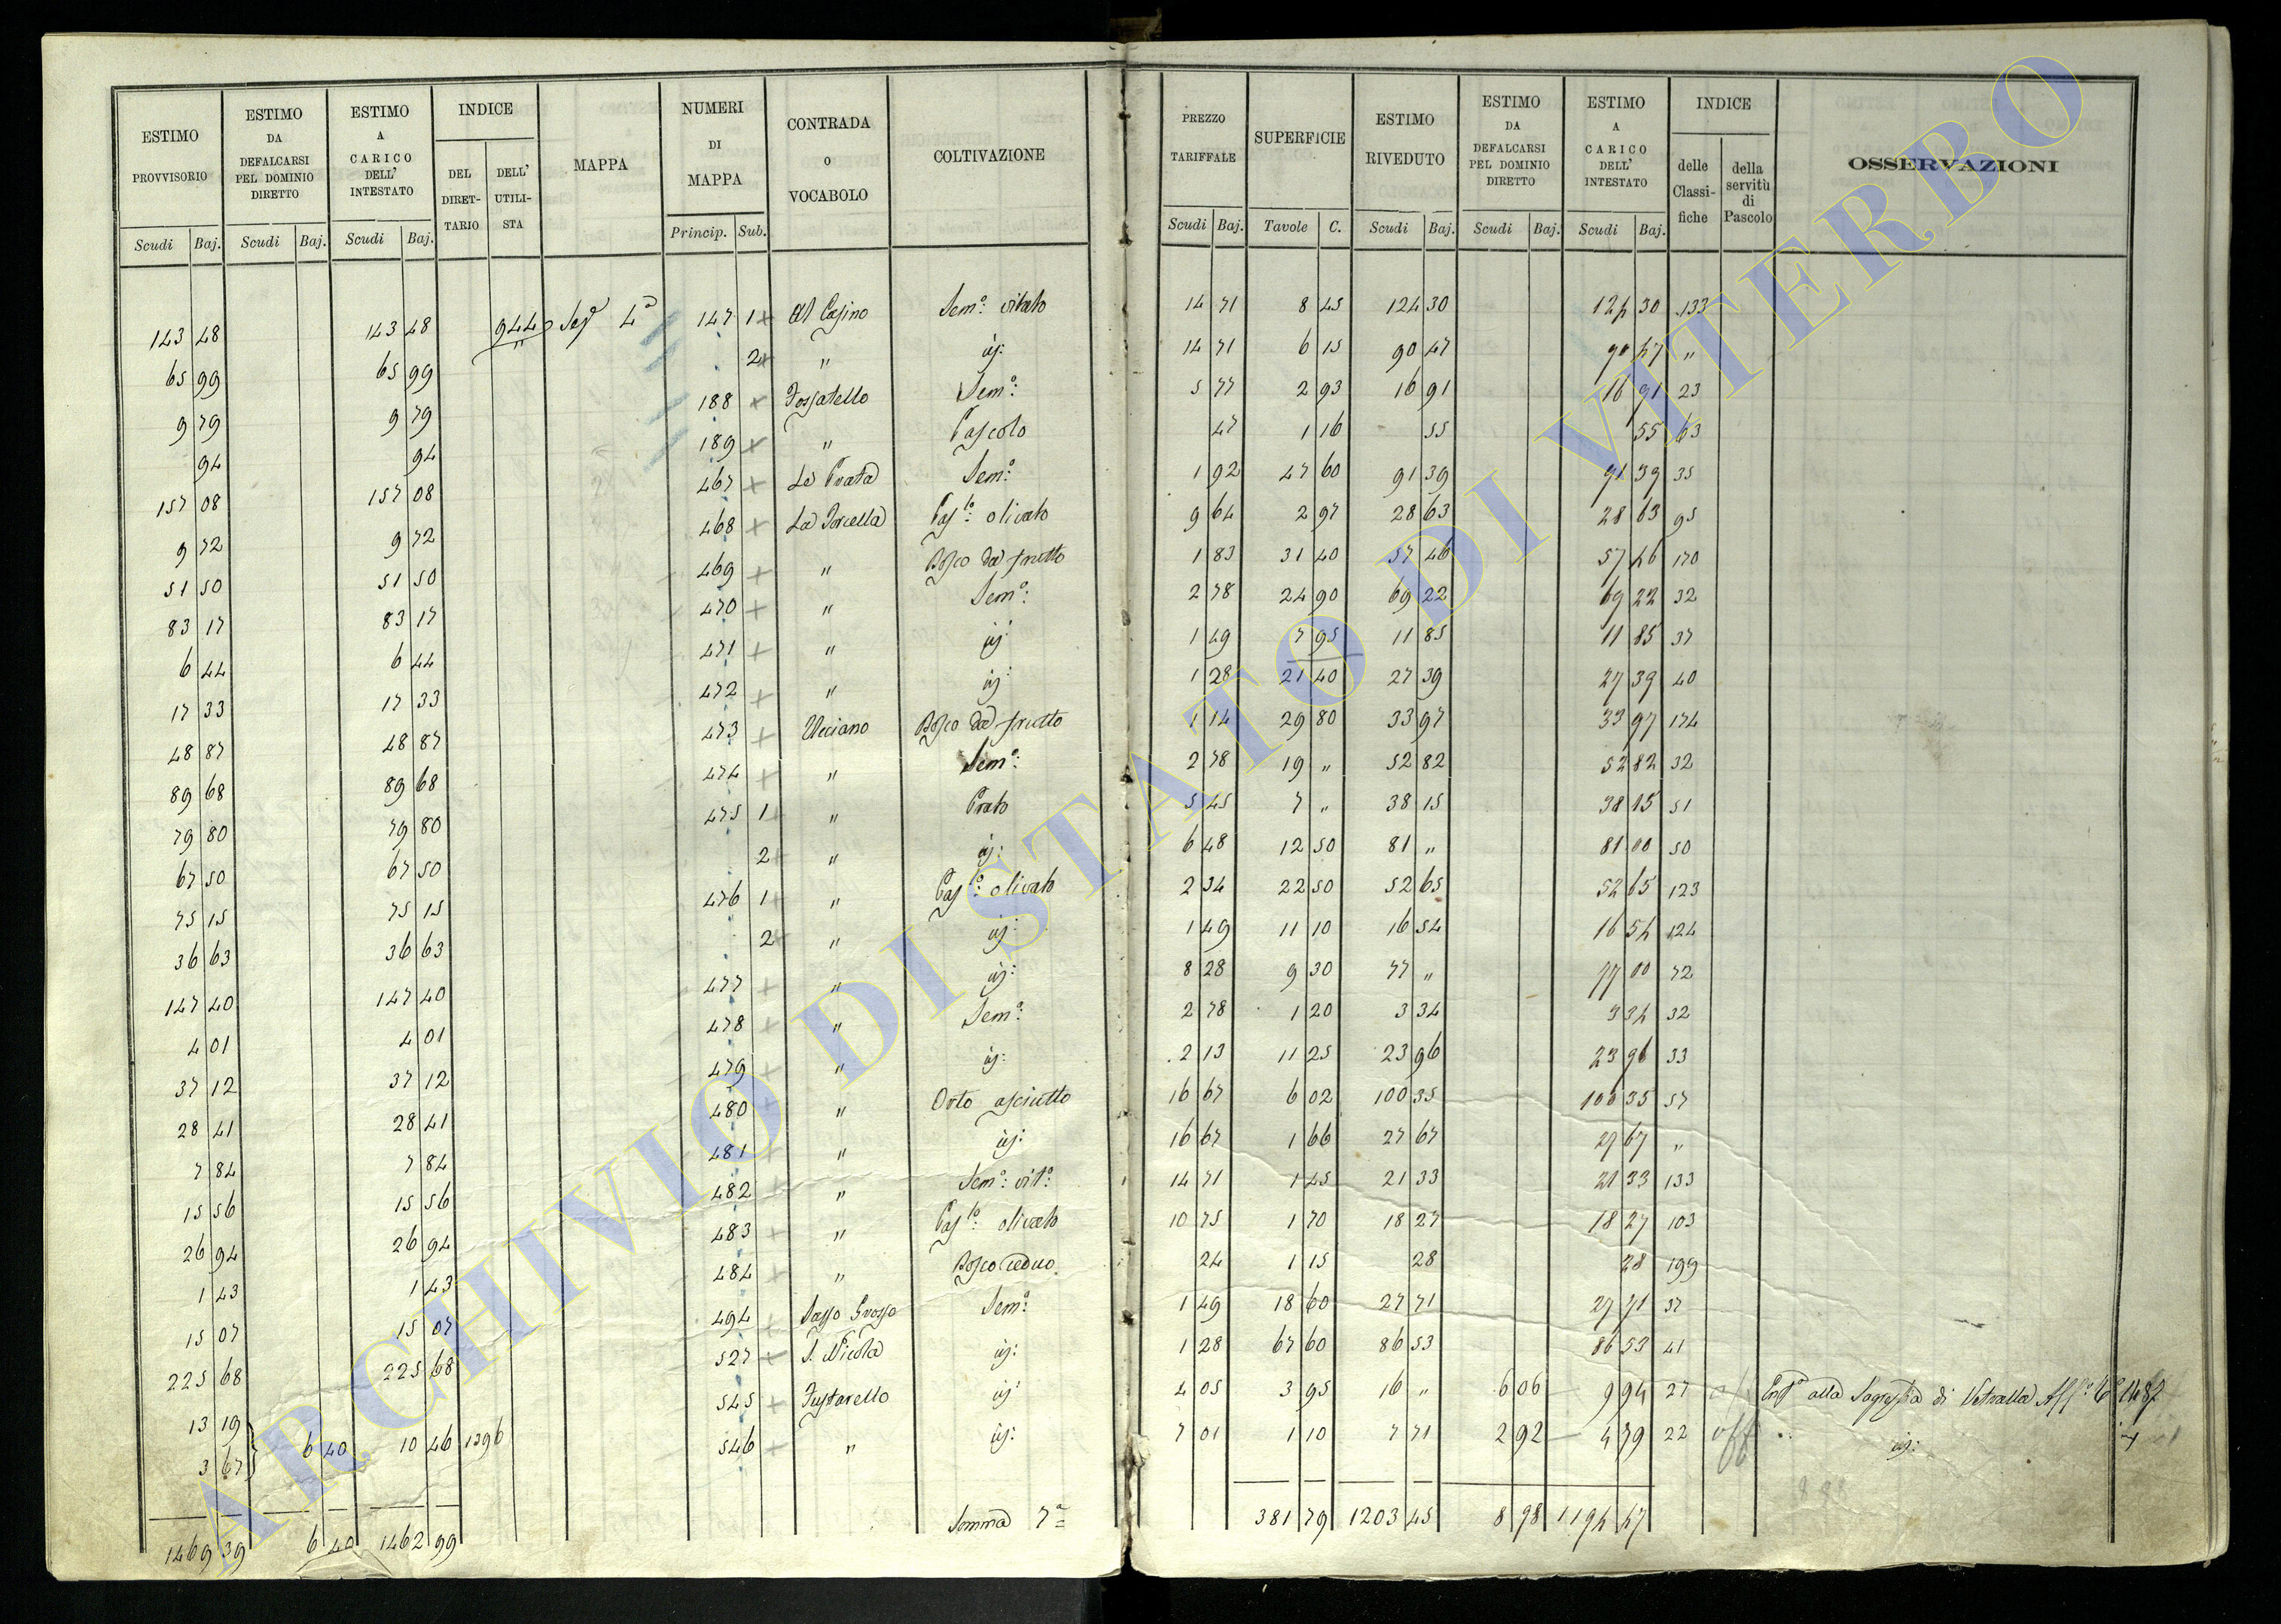 ESTIMO PROVVISORIO | ESTIMO DA DEFALCARSI PEL DOMINIO DIRETTO | ESTIMO A CARICO DELL' INTESTATO | INDICE | MAPPA | NUMERI DI MAPPA | CONTRADA O VOCABOLO | COLTIVAZIONE | PREZZO TARIFFALE | SUPERFICIE | ESTIMO RIVEDUTO | ESTIMO DA DEFALCARSI PEL DOMINIO DIRETTO | ESTIMO A CARICO DELL' INTESTATO | INDICE | OSSERVAZIONI
DEL DIRETTARIO | DELL' UTILISTA | delle Classifiche | della servitù di Pascolo
Scudi Baj. | Scudi Baj. | Scudi Baj. | Princip. Sub. | Scudi Baj. | Tavole C. | Scudi Baj. | Scudi Baj. | Scudi Baj.
143 48 | 143 48 | 944 | Sez. 4a | 147 1 | Al Casino | Sem.o vitato | 14 71 | 8 45 | 124 30 | 124 30 | 133
65 99 | 65 99 | " | 2 | " | id: | 14 71 | 6 15 | 90 47 | 90 47 | "
9 79 | 9 79 | 188 | Fossatello | Sem.o | 5 77 | 2 93 | 16 91 | 16 91 | 23
94 | 94 | 189 | " | Pascolo | 47 | 1 16 | 55 | 55 | 63
157 08 | 157 08 | 467 | Le Prata | Sem.o | 1 92 | 47 60 | 91 39 | 91 39 | 35
9 72 | 9 72 | 468 | La Porcella | Pas.lo olivato | 9 64 | 2 97 | 28 63 | 28 63 | 95
51 50 | 51 50 | 469 | " | Bosco da frutto | 1 83 | 31 40 | 57 46 | 57 46 | 170
83 17 | 83 17 | 470 | " | Sem.o | 2 78 | 24 90 | 69 22 | 69 22 | 32
6 44 | 6 44 | 471 | " | id: | 1 49 | 7 95 | 11 85 | 11 85 | 37
17 33 | 17 33 | 472 | " | id: | 1 28 | 21 40 | 27 39 | 27 39 | 40
48 87 | 48 87 | 473 | Ucciano | Bosco da frutto | 1 14 | 29 80 | 33 97 | 33 97 | 174
89 68 | 89 68 | 474 | " | Sem.o | 2 78 | 19 " | 52 82 | 52 82 | 32
79 80 | 79 80 | 475 1 | " | Prato | 5 45 | 7 " | 38 15 | 38 15 | 51
67 50 | 67 50 | 2 | " | id: | 6 48 | 12 50 | 81 " | 81 00 | 50
75 15 | 75 15 | 476 1 | " | Pas.lo olivato | 2 34 | 22 50 | 52 65 | 52 65 | 123
36 63 | 36 63 | 2 | " | id: | 1 49 | 11 10 | 16 54 | 16 54 | 124
147 40 | 147 40 | 477 | " | id: | 8 28 | 9 30 | 77 " | 77 00 | 72
4 01 | 4 01 | 478 | " | Sem.o | 2 78 | 1 20 | 3 34 | 3 34 | 32
37 12 | 37 12 | 479 | " | id: | 2 13 | 11 25 | 23 96 | 23 96 | 33
28 41 | 28 41 | 480 | " | Orto asciutto | 16 67 | 6 02 | 100 35 | 100 35 | 57
7 84 | 7 84 | 481 | " | id: | 16 67 | 1 66 | 27 67 | 27 67 | "
15 56 | 15 56 | 482 | " | Sem.o vit.o | 14 71 | 1 45 | 21 33 | 21 33 | 133
26 94 | 26 94 | 483 | " | Pas.lo olivato | 10 75 | 1 70 | 18 27 | 18 27 | 103
1 43 | 1 43 | 484 | " | Bosco ceduo | 24 | 1 15 | 28 | 28 | 199
15 07 | 15 07 | 494 | Sasso Grosso | Sem.o | 1 49 | 18 60 | 27 71 | 27 71 | 37
225 68 | 225 68 | 527 | S. Nicola | id: | 1 28 | 67 60 | 86 53 | 86 53 | 41
13 19 | 545 | Fustarello | id: | 4 05 | 3 95 | 16 " | 6 06 | 9 94 | 27 | alla Sagrestia di Vetralla 1482
3 67 | 6 40 | 10 46 | 1396 | 546 | " | id: | 7 01 | 1 10 | 7 71 | 2 92 | 4 79 | 22 | off | id:
1469 39 | 6 40 | 1462 99 | Somma 7a | 381 79 | 1203 45 | 8 98 | 1194 47
ARCHIVIO DI STATO DI VITERBO